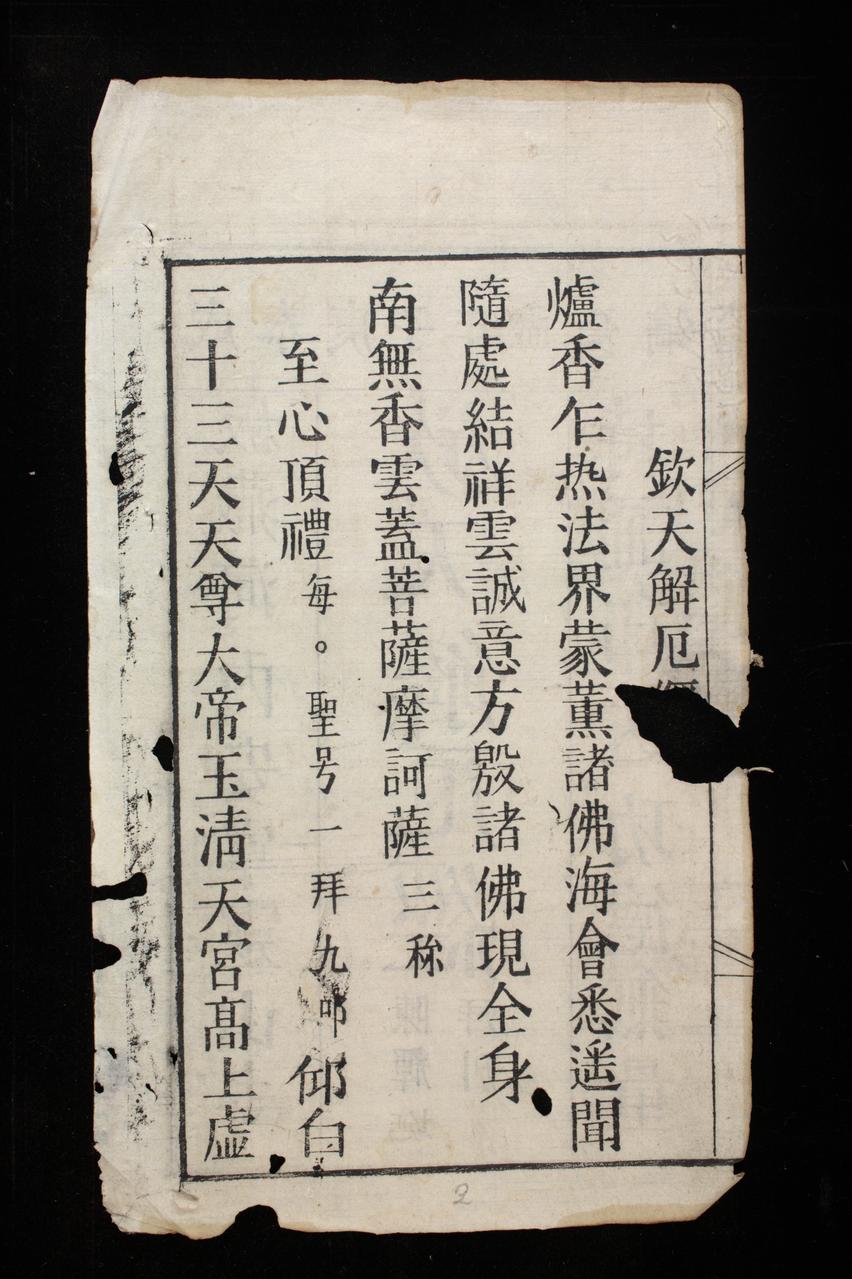 欽天解厄
爐香乍热法界蒙薰諸佛海會悉遥聞
隨處結祥雲誠意方殷諸佛現全身
南無香雲蓋菩薩摩訶薩三称
至心頂禮每。聖号一拜九叩仰白
三十三天天尊大帝玉清天宮髙上虚
2